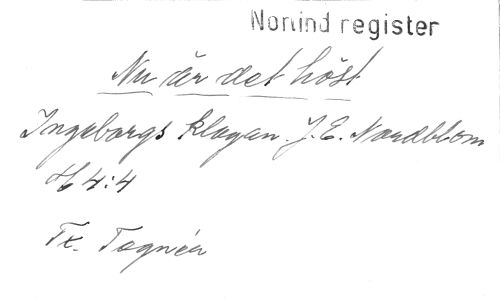 Norlind register
Nu är det höst
Ingeborgs klagan. J. E. Nordblom
H 4:4
Tx. Tegnér